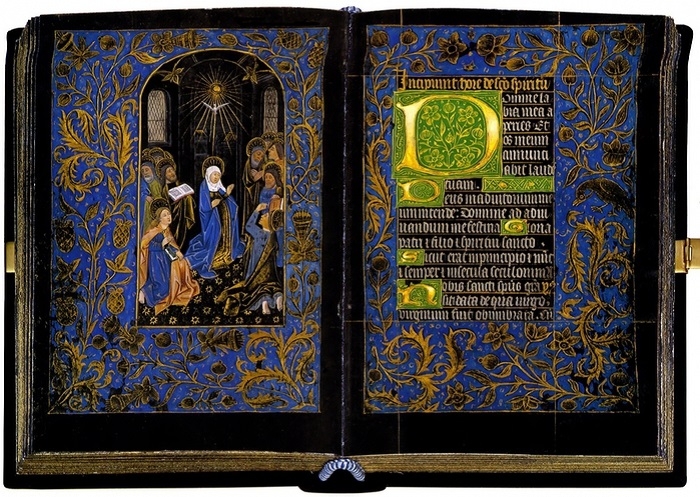 Incipiunt hore de sco spiritu
Domine la
bia mea a
peries Et
os meum
annunci
abit laude
tuam.
Deus in adiutorium meum
intende. Domine ad adiu
uandum me festina Gloria
patri et filio et spiritui sancto.
Sicut erat in principio et nunc
et semper et in secula seculorum
Nobis sancti spūs gra
sit data de qua virgo
virginum fuit obumbrata